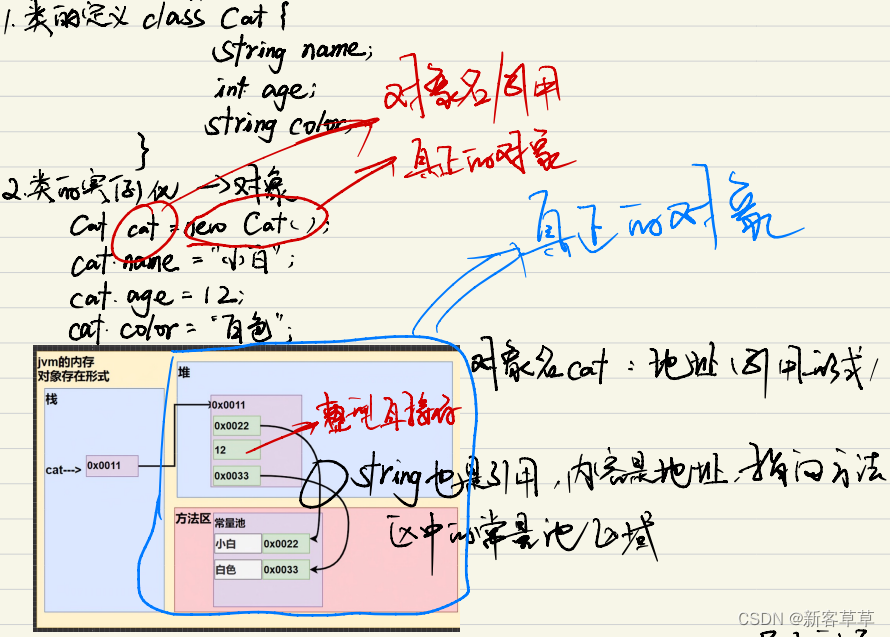 1. 类的定义 class Cat {
string name;
int age;
string color;
}
对象名/引用
真正的对象
2. 类的实例化 —>对象
Cat cat = new Cat();
cat.name = "小白";
cat.age = 12;
cat.color = "白色";
真正的对象
jvm的内存
对象存在形式
栈
cat--->
0x0011
堆
0x0011
0x0022
12
0x0033
整型直接存
方法区
常量池
小白 0x0022
白色 0x0033
对象名cat：地址(引用形式)
string也是引用,内容是地址,指向方法
区中的常量池区域
CSDN @新客草草